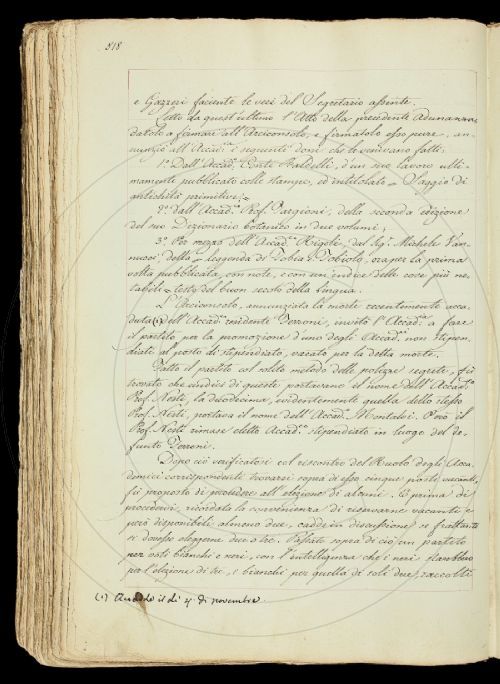 518
e Gazzeri facente le veci del Segretario assente.
Letto da quest'ultimo l'Atto della precedente Adunanza,
datolo a firmare all'Arciconsolo, e firmatolo esso pure, an-
nunziò all'Accad.ª i seguenti doni che le venivano fatti:
1.º Dall'Accad.º Conte Baldelli, d'un suo lavoro ulti-
mamente pubblicato colle stampe, ed intitolato = Saggio di
antichità primitive; =
2.º dall'Accad.co Prof. Targioni, della seconda edizione
del suo Dizionario botanico in due volumi;
3.º Per mezzo dell'Accad.co Rigoli, dal Sig.r Michele Van-
nucci della = leggenda di Tobia e Tobiolo, ora per la prima
volta pubblicata, con note, e con un indice delle cose più no-
tabili = testo del buon secolo della lingua.
L'Arciconsolo, annunziata la morte recentemente acca-
duta (1) dell'Accad.co residente Ferroni, invitò l'Accad.ª a fare
il partito per la promozione d'uno degli Accad.ci non stipen-
diati al posto di stipendiato, vacato per la detta morte.
Fatto il partito col solito metodo delle polizze segrete, fù
trovato che undici di queste portavano il nome dell'Accad.co
Prof. Nesti, la duodecima, evidentemente quella dello stesso
Prof. Nesti, portava il nome dell'Accad.co Montalvi. Però il
Prof. Nesti rimase eletto Accad.co stipendiato in luogo del de-
funto Ferroni.
Dopo ciò verificatosi col riscontro del Ruolo degli Acca-
demici corrispondenti trovarsi sopra di esso cinque posti vacanti,
fù proposto di procedere all'elezione di alcuni. Ma prima di
procedervi, ricordata la convenienza di riservarne vacanti e
però disponibili almeno due, cadde in discussione se frattanto
si dovesse eleggerne due o tre. Passato sopra di ciò un partito
per voti bianchi e neri, con l'intelligenza che i neri sarebbero
per l'elezione di tre, i bianchi per quella di soli due, raccolti
(1) Accadde il dì 4 di novembre.